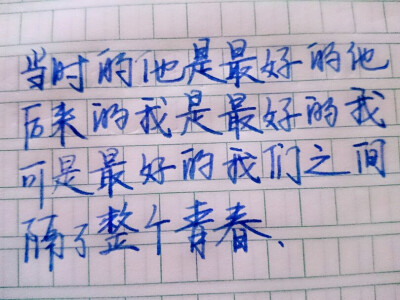 当时的他是最好的他
后来的我是最好的我
可是最好的我们之间
隔了整个青春、